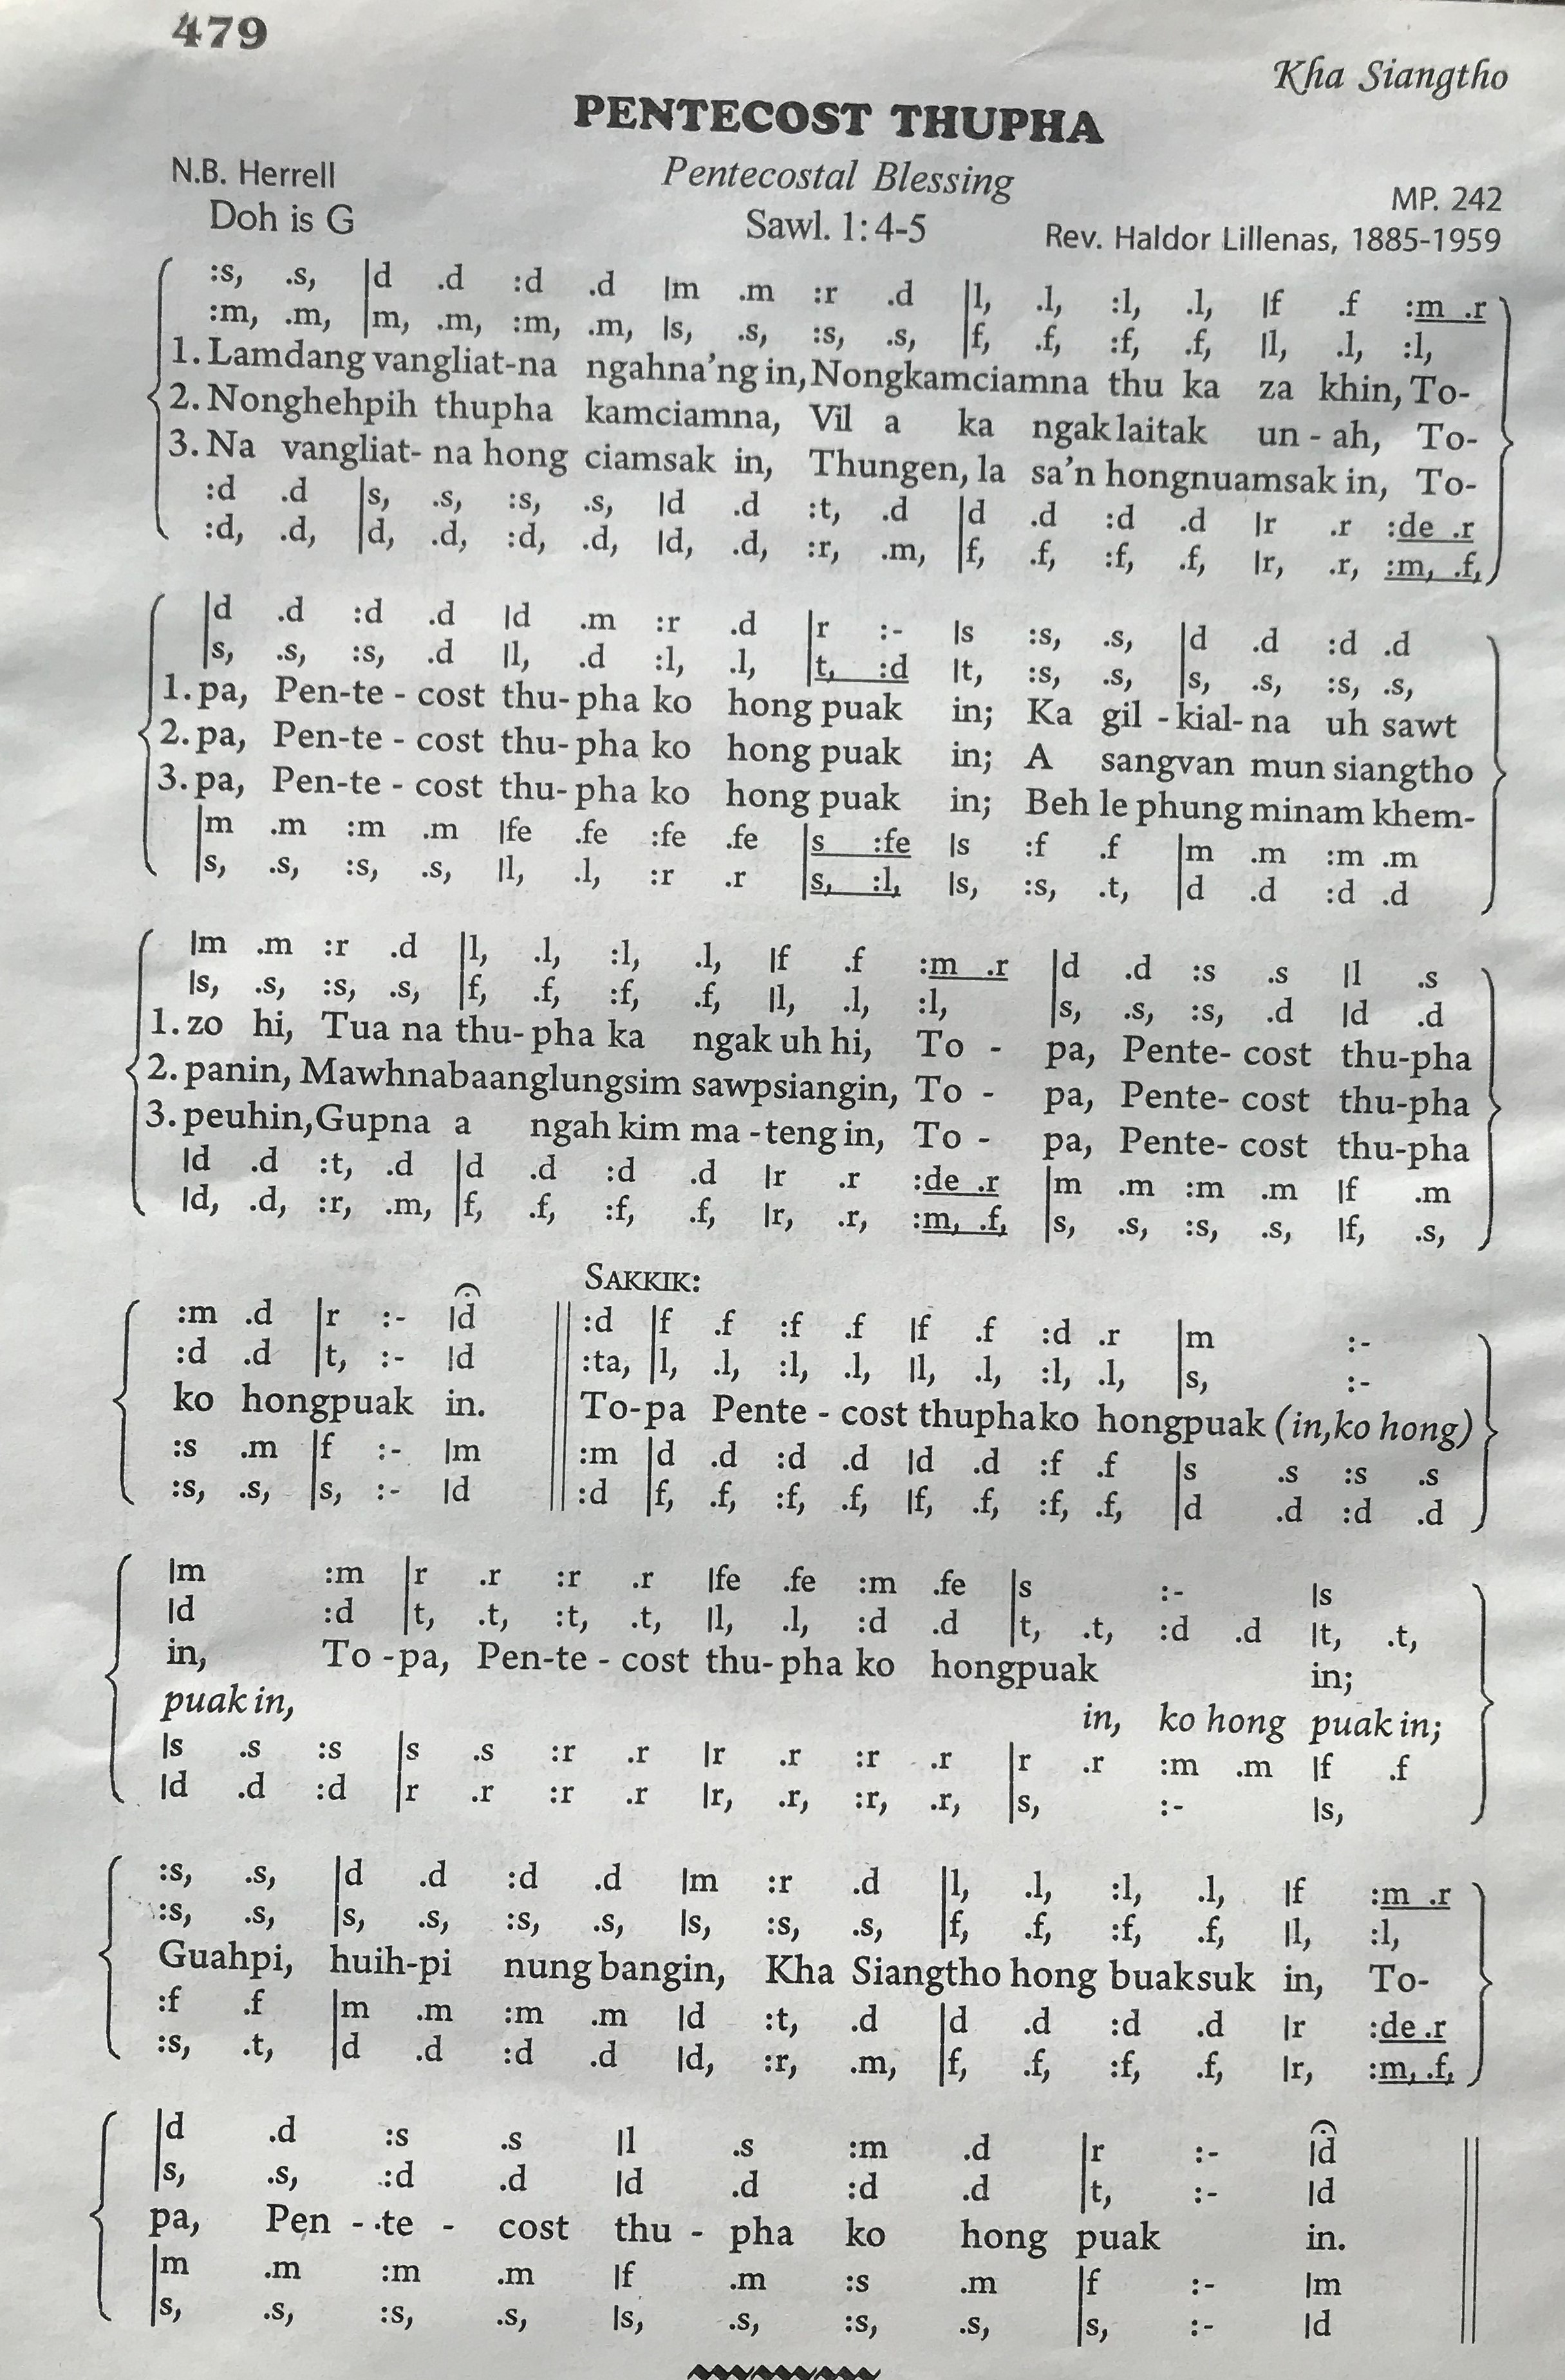 479
Kha Siangtho
PENTECOST THUPHA
N.B. Herrell
Pentecostal Blessing
MP. 242
Doh is G
Sawl. 1: 4-5
Rev. Haldor Lillenas, 1885-1959
:s, .s, |d .d :d .d |m .m :r .d |l, .l, :l, .l, |f .f :m .r
:m, .m, |m, .m, :m, .m, |s, .s, :s, .s, |f, .f, :f, .f, |l, .l, :l,
1. Lamdang vangliat-na ngahna'ng in, Nongkamciamna thu ka za khin, To-
2. Nonghehpih thupha kamciamna, Vil a ka ngak laitak un - ah, To-
3. Na vangliat- na hong ciamsak in, Thungen, la sa'n hongnuamsak in, To-
:d .d |s, .s, :s, .s, |d .d :t, .d |d .d :d .d |r .r :de .r
:d, .d, |d, .d, :d, .d, |d, .d, :r, .m, |f, .f, :f, .f, |r, .r, :m, .f,
|d .d :d .d |d .m :r .d |r :- |s :s, .s, |d .d :d .d
|s, .s, :s, .d |l, .d :l, .l, |t, :d |t, :s, .s, |s, .s, :s, .s,
1. pa, Pen-te - cost thu- pha ko hong puak in; Ka gil - kial- na uh sawt
2. pa, Pen-te - cost thu- pha ko hong puak in; A sangvan mun siangtho
3. pa, Pen-te - cost thu- pha ko hong puak in; Beh le phung minam khem-
|m .m :m .m |fe .fe :fe .fe |s :fe |s :f .f |m .m :m .m
|s, .s, :s, .s, |l, .l, :r .r |s, :l, |s, :s, .t, |d .d :d .d
|m .m :r .d |l, .l, :l, .l, |f .f :m .r |d .d :s .s |l .s
|s, .s, :s, .s, |f, .f, :f, .f, |l, .l, :l, |s, .s, :s, .d |d .d
1. zo hi, Tua na thu- pha ka ngak uh hi, To - pa, Pente- cost thu-pha
2. panin, Mawhnabaanglungsim sawpsiangin, To - pa, Pente- cost thu-pha
3. peuhin, Gupna a ngah kim ma -teng in, To - pa, Pente- cost thu-pha
|d .d :t, .d |d .d :d .d |r .r :de .r |m .m :m .m |f .m
|d, .d, :r, .m, |f, .f, :f, .f, |r, .r, :m, .f, |s, .s, :s, .s, |f, .s,
SAKKIK:
:m .d |r :- |d :d |f .f :f .f |f .f :d .r |m :-
:d .d |t, :- |d :ta, |l, .l, :l, .l, |l, .l, :l, .l, |s, :-
ko hongpuak in. To-pa Pente - cost thuphako hongpuak (in,ko hong)
:s .m |f :- |m :m |d .d :d .d |d .d :f .f |s .s :s .s
:s, .s, |s, :- |d :d |f, .f, :f, .f, |f, .f, :f, .f, |d .d :d .d
|m :m |r .r :r .r |fe .fe :m .fe |s :- |s
|d :d |t, .t, :t, .t, |l, .l, :d .d |t, .t, :d .d |t, .t,
in, To -pa, Pen-te - cost thu- pha ko hongpuak in;
puak in, in, ko hong puak in;
|s .s :s |s .s :r .r |r .r :r .r |r .r :m .m |f .f
|d .d :d |r .r :r .r |r, .r, :r, .r, |s, :- |s,
:s, .s, |d .d :d .d |m :r .d |l, .l, :l, .l, |f :m .r
:s, .s, |s, .s, :s, .s, |s, :s, .s, |f, .f, :f, .f, |l, :l,
Guahpi, huih-pi nung bangin, Kha Siangtho hong buaksuk in, To-
:f .f |m .m :m .m |d :t, .d |d .d :d .d |r :de .r
:s, .t, |d .d :d .d |d, :r, .m, |f, .f, :f, .f, |r, :m, .f,
|d .d :s .s |l .s :m .d |r :- |d
|s, .s, :d .d |d .d :d .d |t, :- |d
pa, Pen - te - cost thu - pha ko hong puak in.
|m .m :m .m |f .m :s .m |f :- |m
|s, .s, :s, .s, |s, .s, :s, .s, |s, :- |d